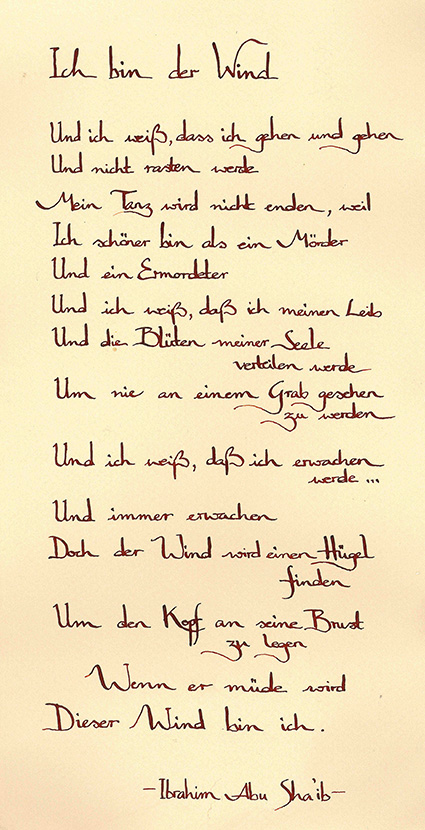 Ich bin der Wind
Und ich weiß, dass ich gehen und gehen
Und nicht rasten werde
Mein Tanz wird nicht enden, weil
Ich schöner bin als ein Mörder
Und ein Ermordeter
Und ich weiß, daß ich meinen Leib
Und die Blüten meiner Seele
verteilen werde
Um nie an einem Grab gesehen
zu werden
Und ich weiß, daß ich erwachen
werde ...
Und immer erwachen
Doch der Wind wird einen Hügel
finden
Um den Kopf an seine Brust
zu legen
Wenn er müde wird
Dieser Wind bin ich.
-Ibrahim Abu Sha'ib-